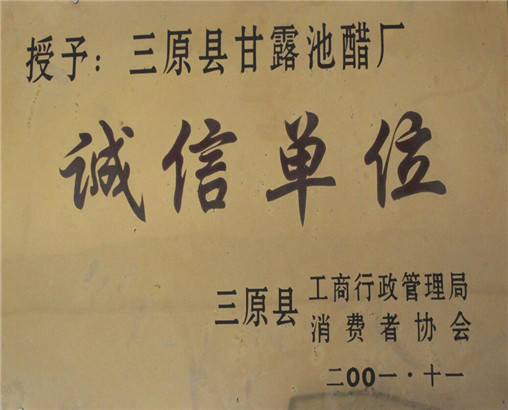 授予：三原县甘露池醋厂
诚信单位
三原县 工商行政管理局
消费者协会
二00一·十一